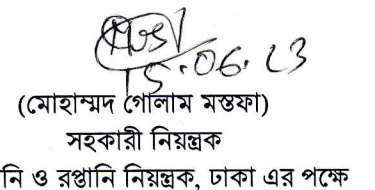 15.06.23
(মোহাম্মদ গোলাম মস্তফা)
সহকারী নিয়ন্ত্রক
নি ও রপ্তানি নিয়ন্ত্রক, ঢাকা এর পক্ষে